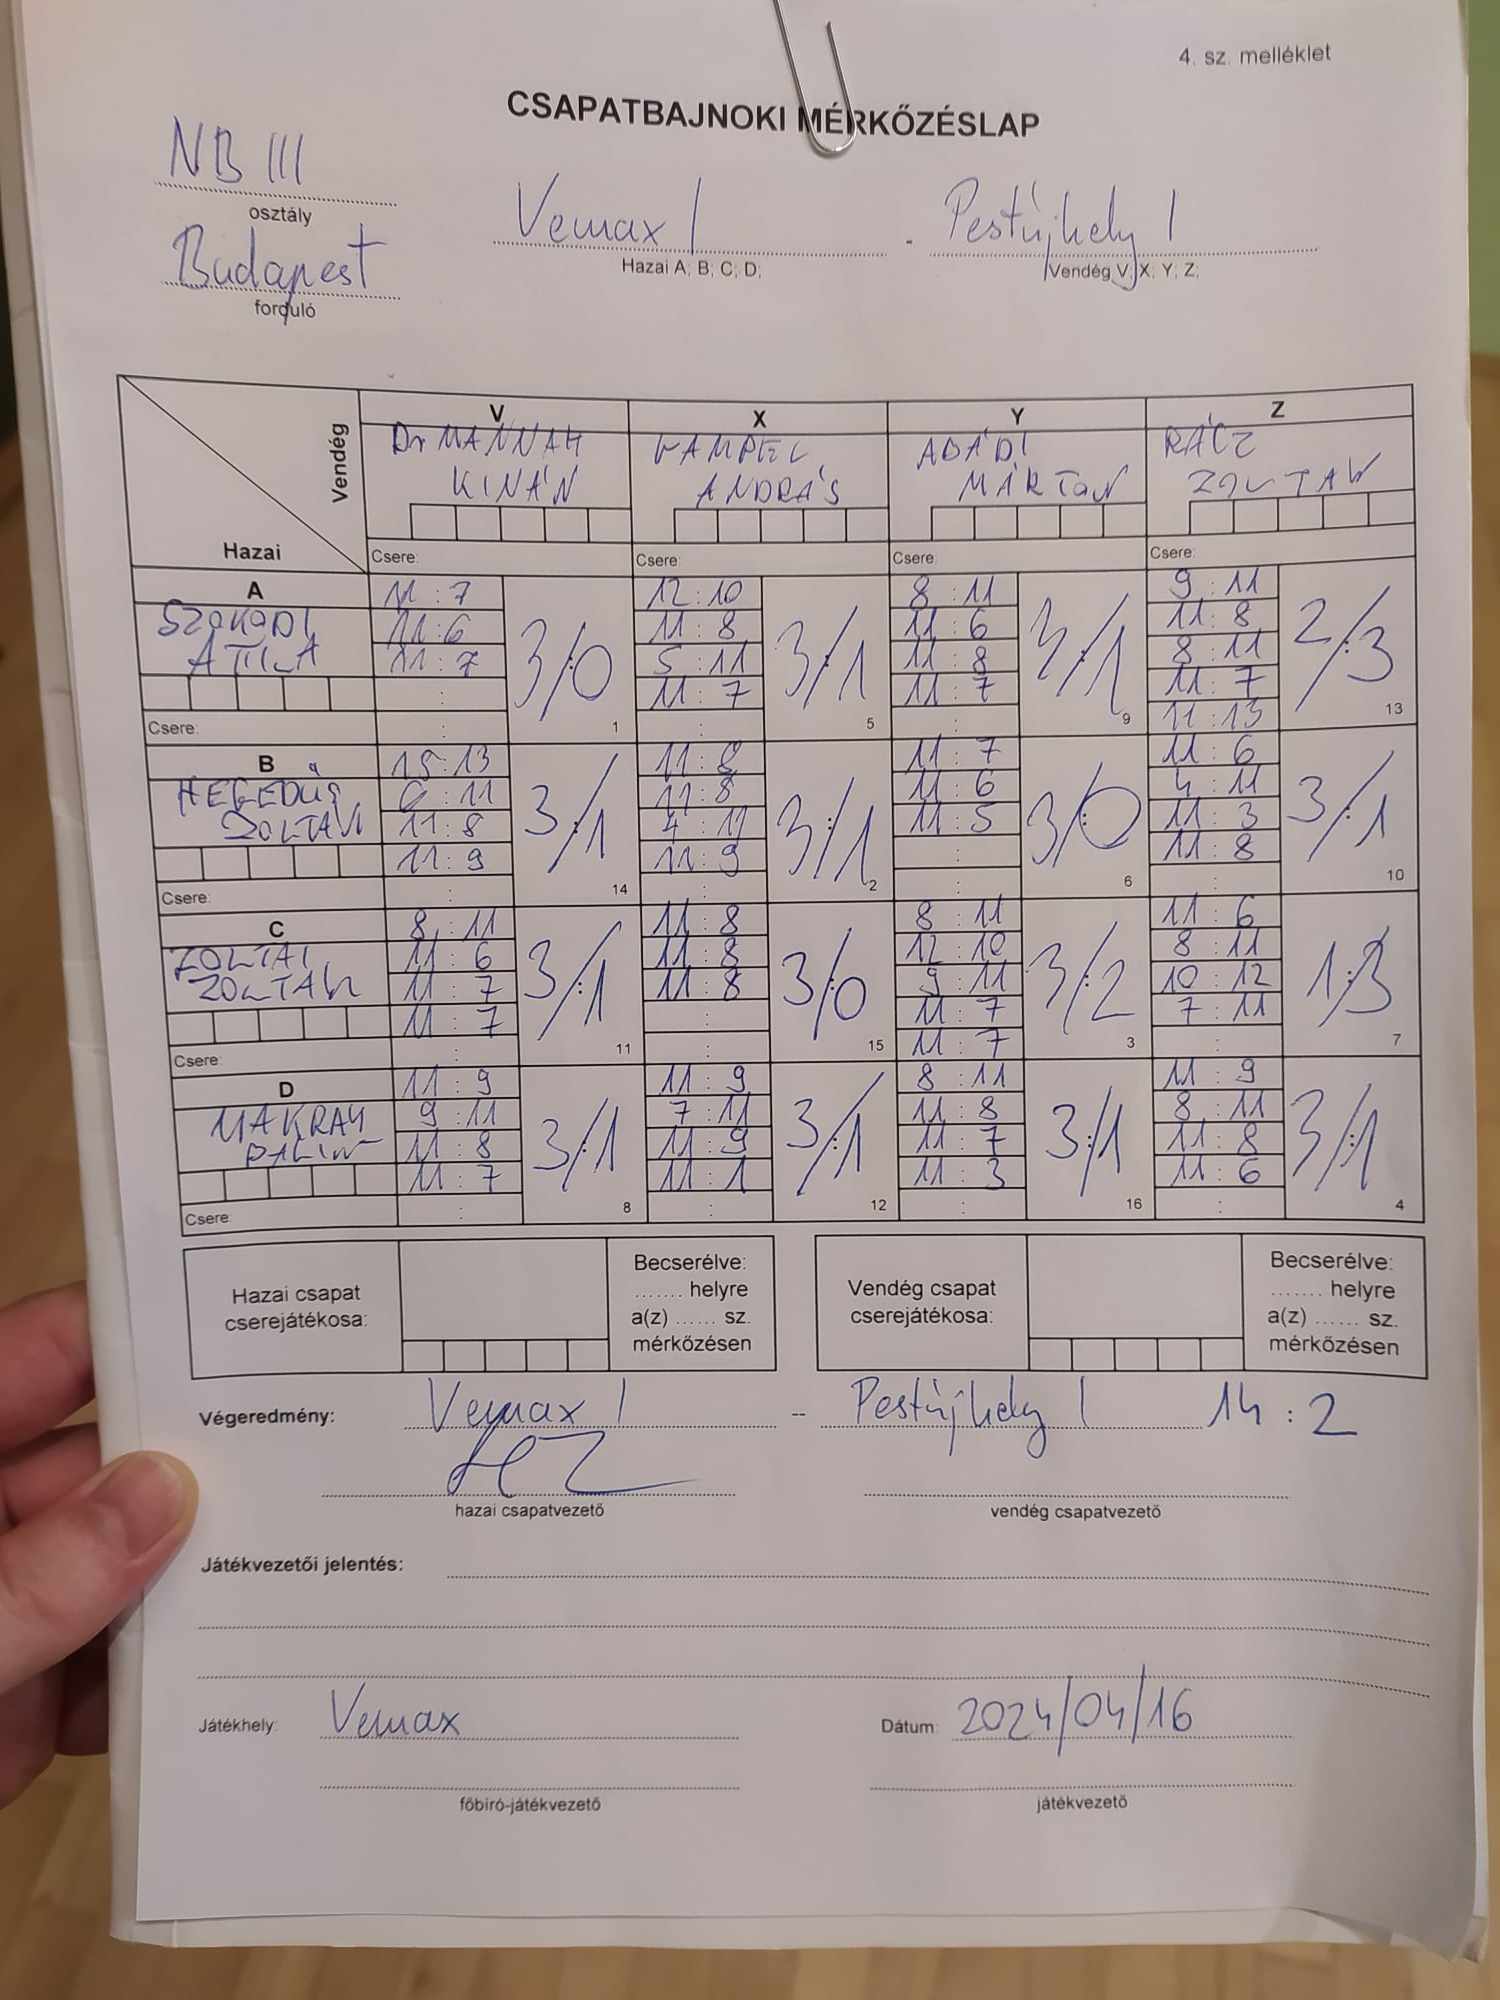 4. sz. melléklet
CSAPATBAJNOKI MÉRKŐZÉSLAP
NB III
osztály
Budapest
forduló
Vemax I - Pestújhely I
Hazai A; B; C; D; Vendég V; X; Y; Z;
Vendég
Hazai
V X Y Z
Dr MANNAH
KINÁN
ANDRÁS
ABÁDI
MÁRTON
RÁCZ
ZOLTAN
Csere: Csere: Csere: Csere:
A
ATILA
Csere:
11 : 7
11 : 6
11 : 7
:
:
3/0
1
12 : 10
11 : 8
5 : 11
11 : 7
:
3/1
5
8 : 11
11 : 6
11 : 8
11 : 7
:
3/1
9
9 : 11
11 : 8
8 : 11
11 : 7
11 : 13
2/3
13
B
HEGEDŰS
ZOLTÁN
Csere:
15 : 13
6 : 11
11 : 8
11 : 9
:
3/1
14
11 : 8
11 : 8
4 : 11
11 : 9
:
3/1
2
11 : 7
11 : 6
11 : 5
:
:
3/0
6
11 : 6
4 : 11
11 : 3
11 : 8
:
3/1
10
C
ZOLTAI
ZOLTAN
Csere:
8 : 11
11 : 6
11 : 7
11 : 7
:
3/1
11
11 : 8
11 : 8
11 : 8
:
:
3/0
15
8 : 11
12 : 10
9 : 11
11 : 7
11 : 7
3/2
3
11 : 6
8 : 11
10 : 12
7 : 11
:
1:3
7
D
MAKRAY
Csere:
11 : 9
9 : 11
11 : 8
11 : 7
:
3/1
8
11 : 9
7 : 11
11 : 9
11 : 1
:
3/1
12
8 : 11
11 : 8
11 : 7
11 : 3
:
3/1
16
11 : 9
8 : 11
11 : 8
11 : 6
:
3/1
4
Hazai csapat
cserejátékosa:
Becserélve:
....... helyre
a(z) ...... sz.
mérkőzésen
Vendég csapat
cserejátékosa:
Becserélve:
....... helyre
a(z) ...... sz.
mérkőzésen
Végeredmény: Vemax I – Pestújhely I 14 : 2
HZ
hazai csapatvezető vendég csapatvezető
Játékvezetői jelentés:
Játékhely: Vemax Dátum: 2024/04/16
főbíró-játékvezető játékvezető